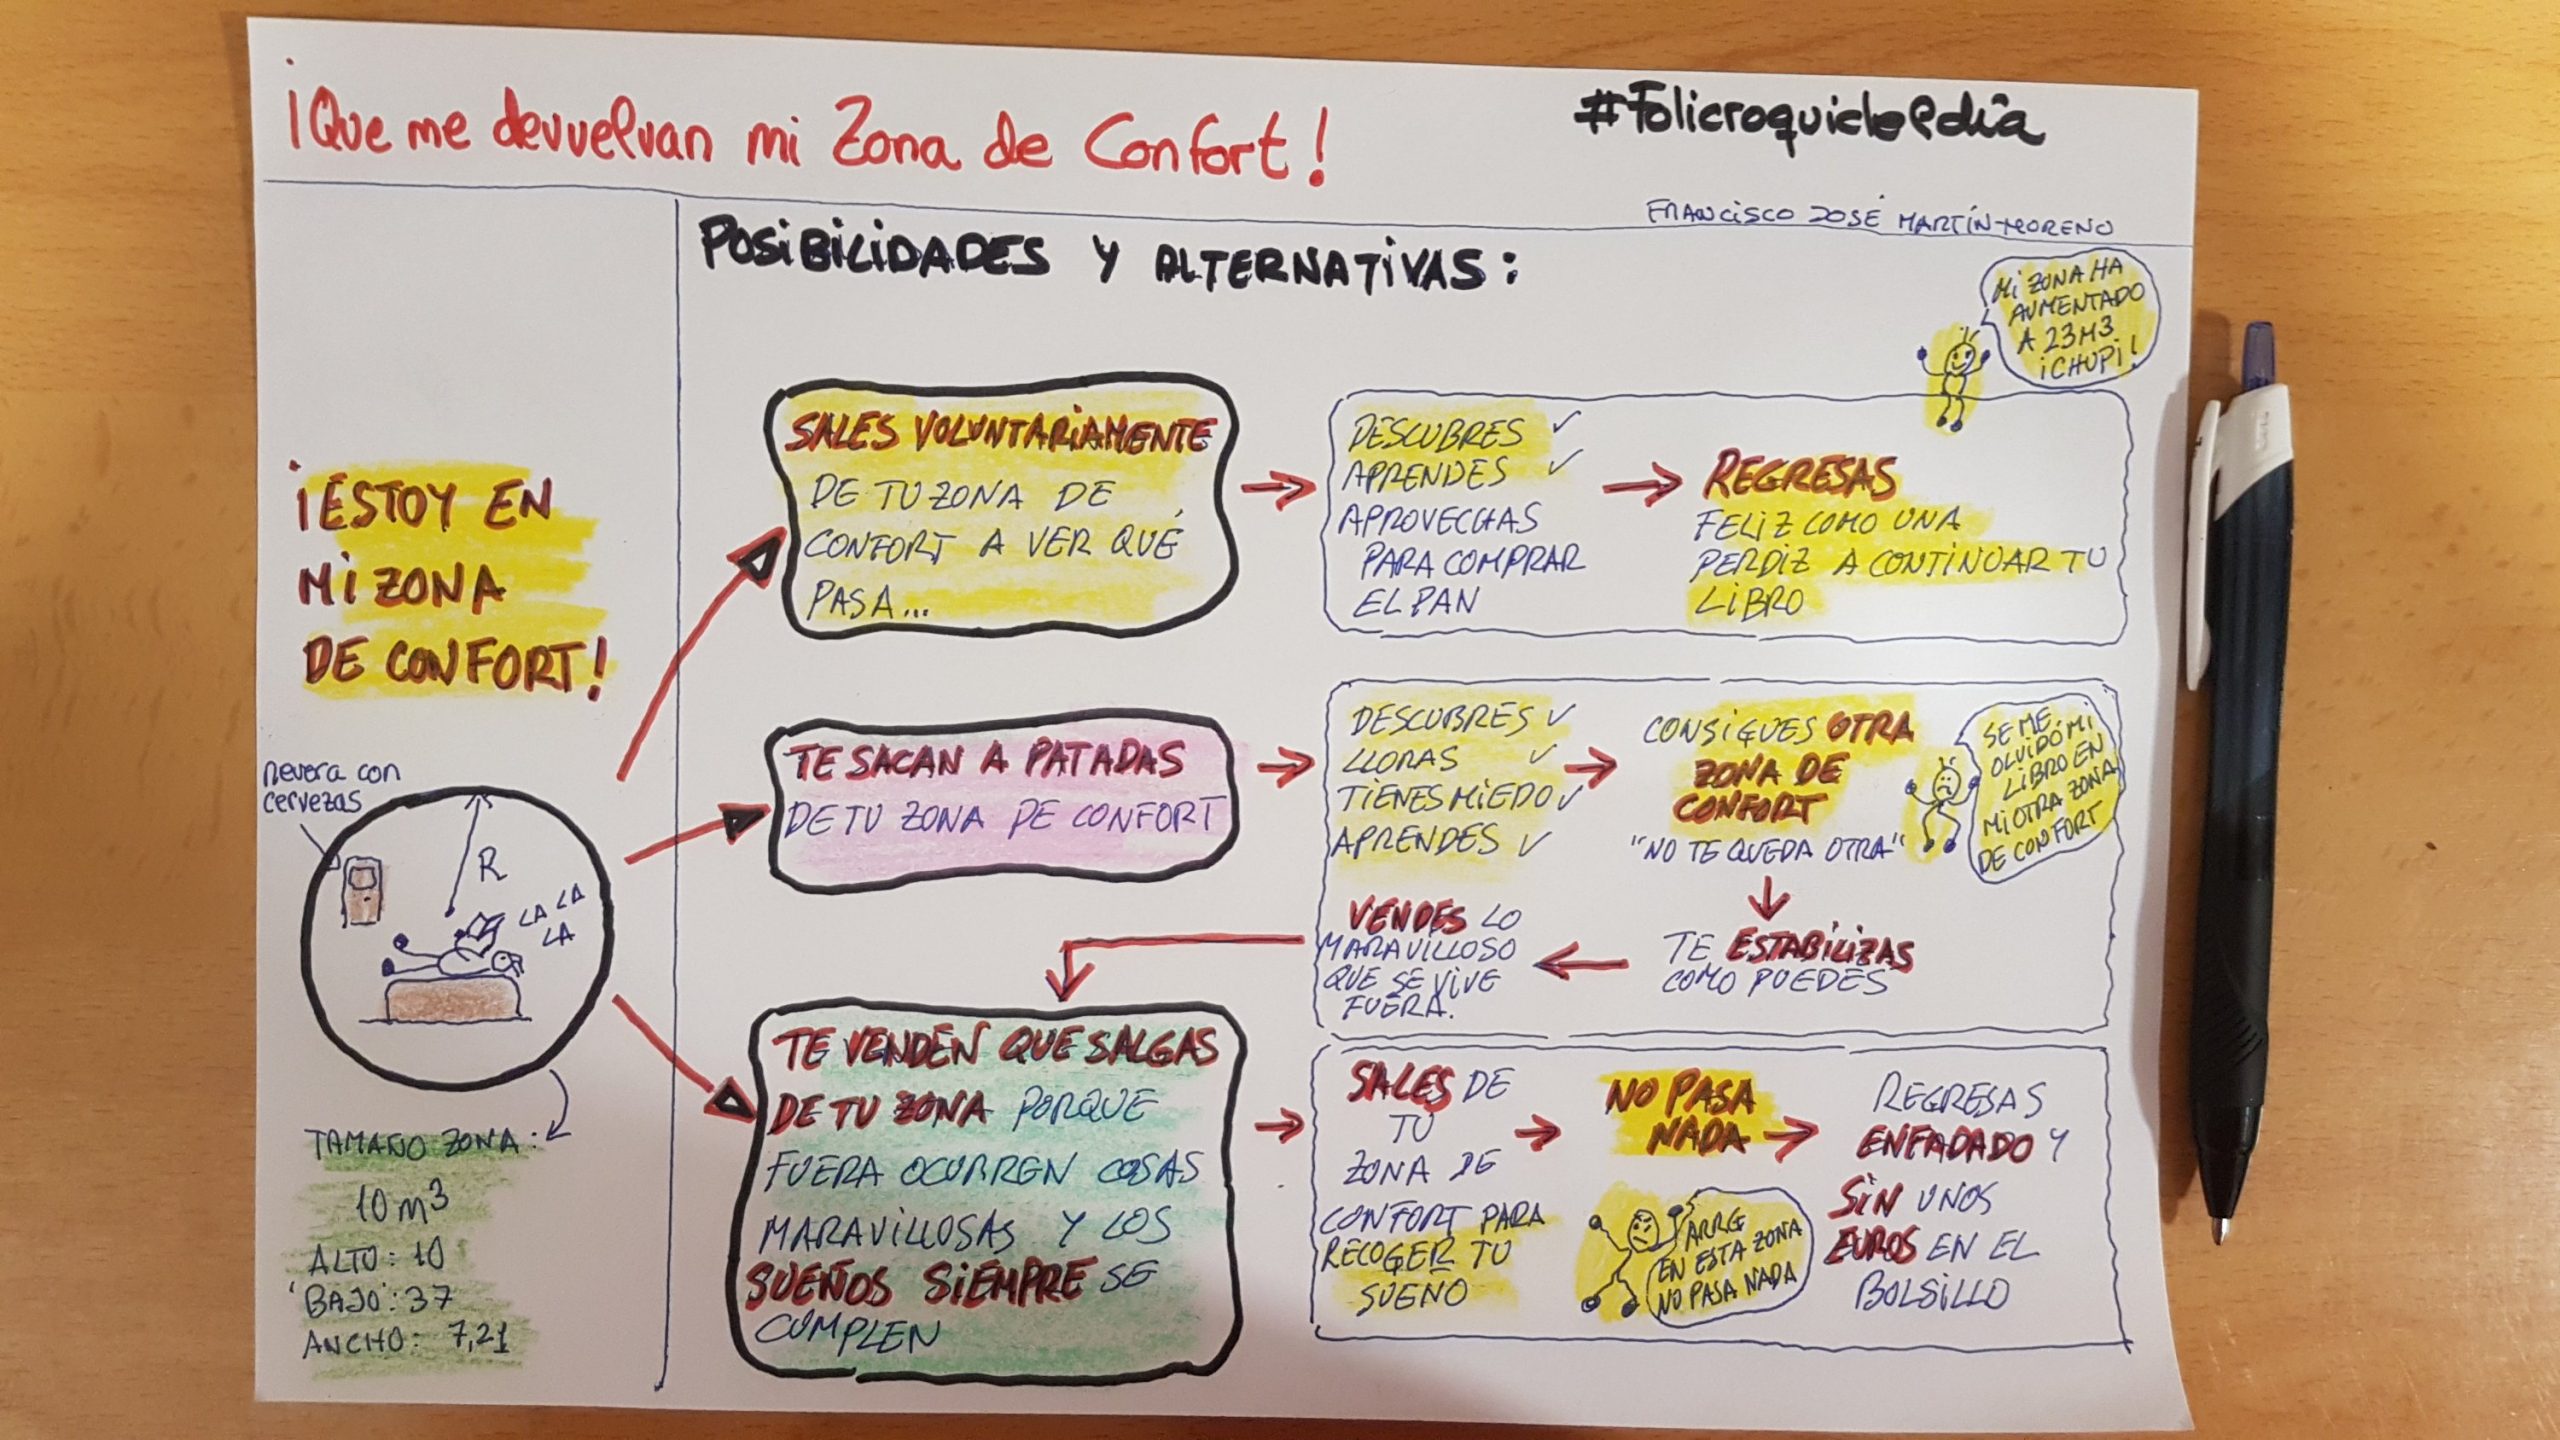 ¡Que me devuelvan mi Zona de Confort!
#FolicroquicloPdía
FRANCISCO JOSÉ MARTÍN-MORENO
¡ESTOY EN
MI ZONA
DE CONFORT!
nevera con
cervezas
R
LA LA
LA
TAMAÑO ZONA:
10 m3
ALTO: 10
BAJO: 37
ANCHO: 7,21
POSIBILIDADES Y ALTERNATIVAS:
SALES VOLUNTARIAMENTE
DE TU ZONA DE
CONFORT A VER QUÉ
PASA...
DESCUBRES ✓
APRENDES ✓
APROVECHAS
PARA COMPRAR
EL PAN
REGRESAS
FELIZ COMO UNA
PERDIZ A CONTINUAR TU
LIBRO
MI ZONA HA
AUMENTADO
A 23M3
¡CHUPI!
TE SACAN A PATADAS
DE TU ZONA DE CONFORT
DESCUBRES ✓
LLORAS ✓
TIENES MIEDO ✓
APRENDES ✓
CONSIGUES OTRA
ZONA DE
CONFORT
"NO TE QUEDA OTRA"
SE ME
OLVIDÓ MI
LIBRO EN
MI OTRA ZONA
DE CONFORT
TE ESTABILIZAS
COMO PUEDES
VENDES LO
MARAVILLOSO
QUE SE VIVE
FUERA.
TE VENDEN QUE SALGAS
DE TU ZONA PORQUE
FUERA OCURREN COSAS
MARAVILLOSAS Y LOS
SUEÑOS SIEMPRE SE
CUMPLEN
SALES DE
TU
ZONA DE
CONFORT PARA
RECOGER TU
SUEÑO
NO PASA
NADA
ARRG
EN ESTA ZONA
NO PASA NADA
REGRESAS
ENFADADO Y
SIN UNOS
EUROS EN EL
BOLSILLO